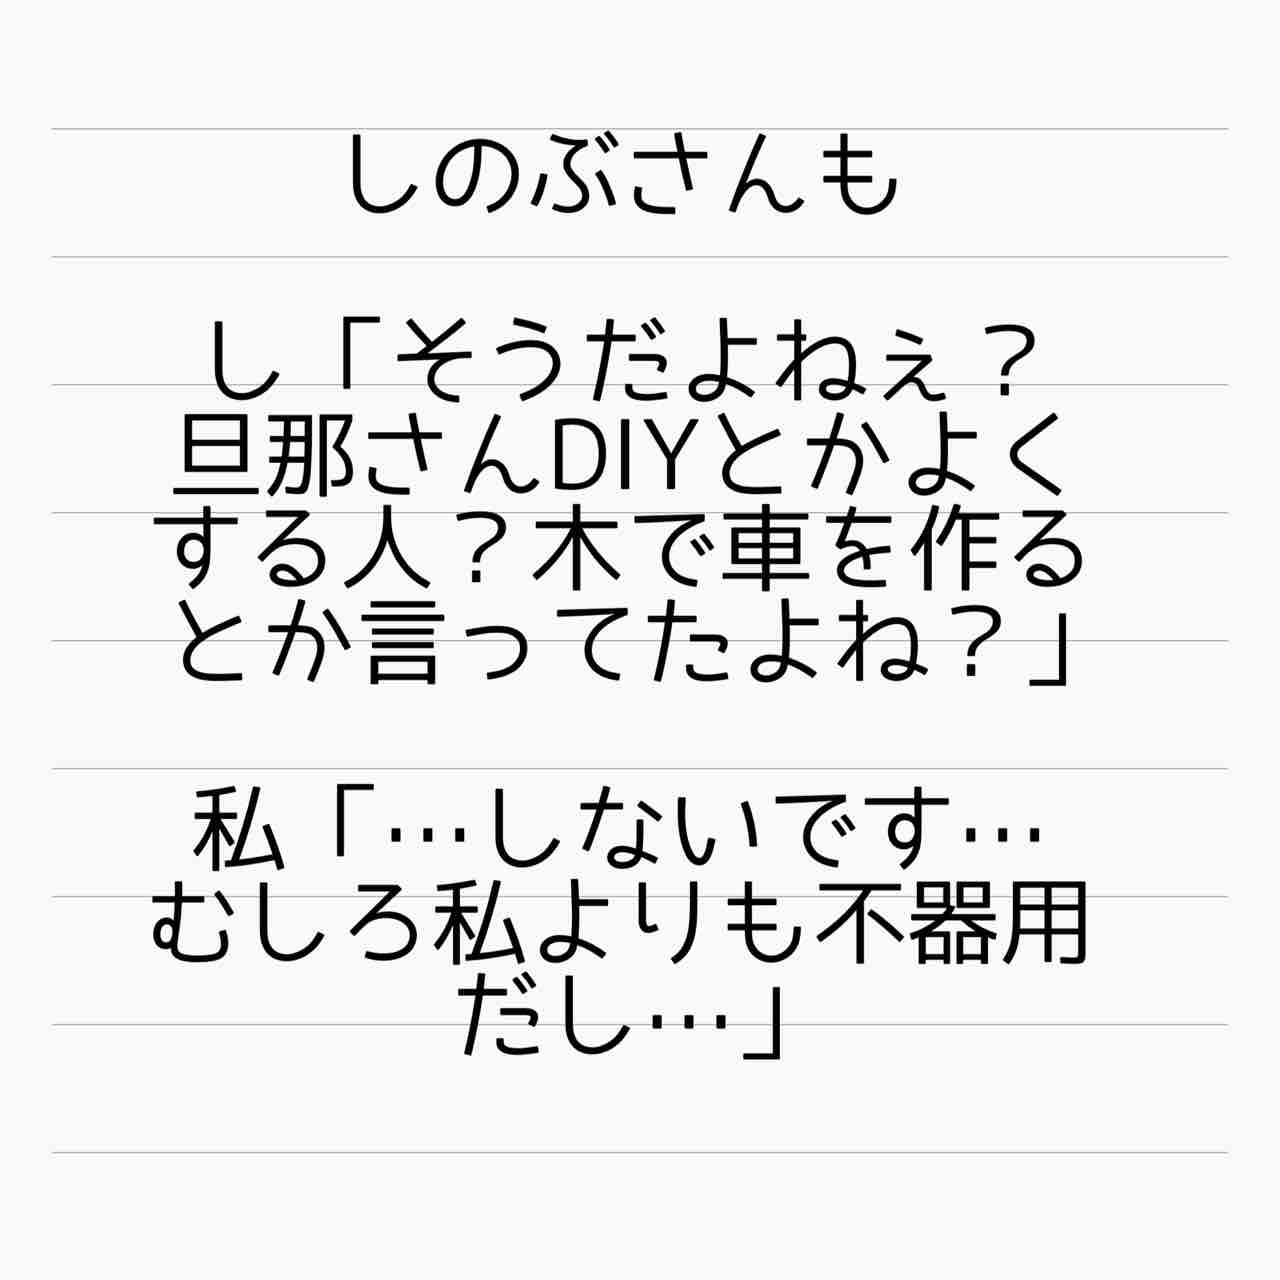 しのぶさんも
し「そうだよねぇ？
旦那さんDIYとかよく
する人？木で車を作る
とか言ってたよね？」
私「…しないです…
むしろ私よりも不器用
だし…」